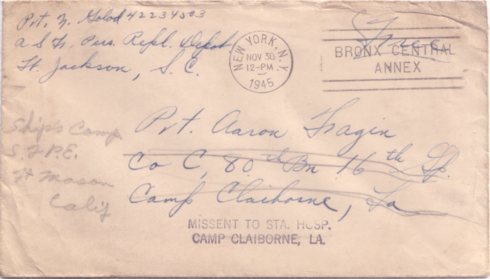 Pvt. N. Golod 42234503
A S F. Pers. Repl. Depot
Ft. Jackson, S. C.
NEW YORK, N.Y.
NOV 30
12-PM
1945
Free
BRONX CENTRAL
ANNEX
Ship's Camp
S. F. P.E.
Ft Mason
Calif
Pvt. Aaron Fagin
Co C, 80th Bn 16th
Camp Claiborne, La
MISSENT TO STA. HOSP.
CAMP CLAIBORNE, LA.